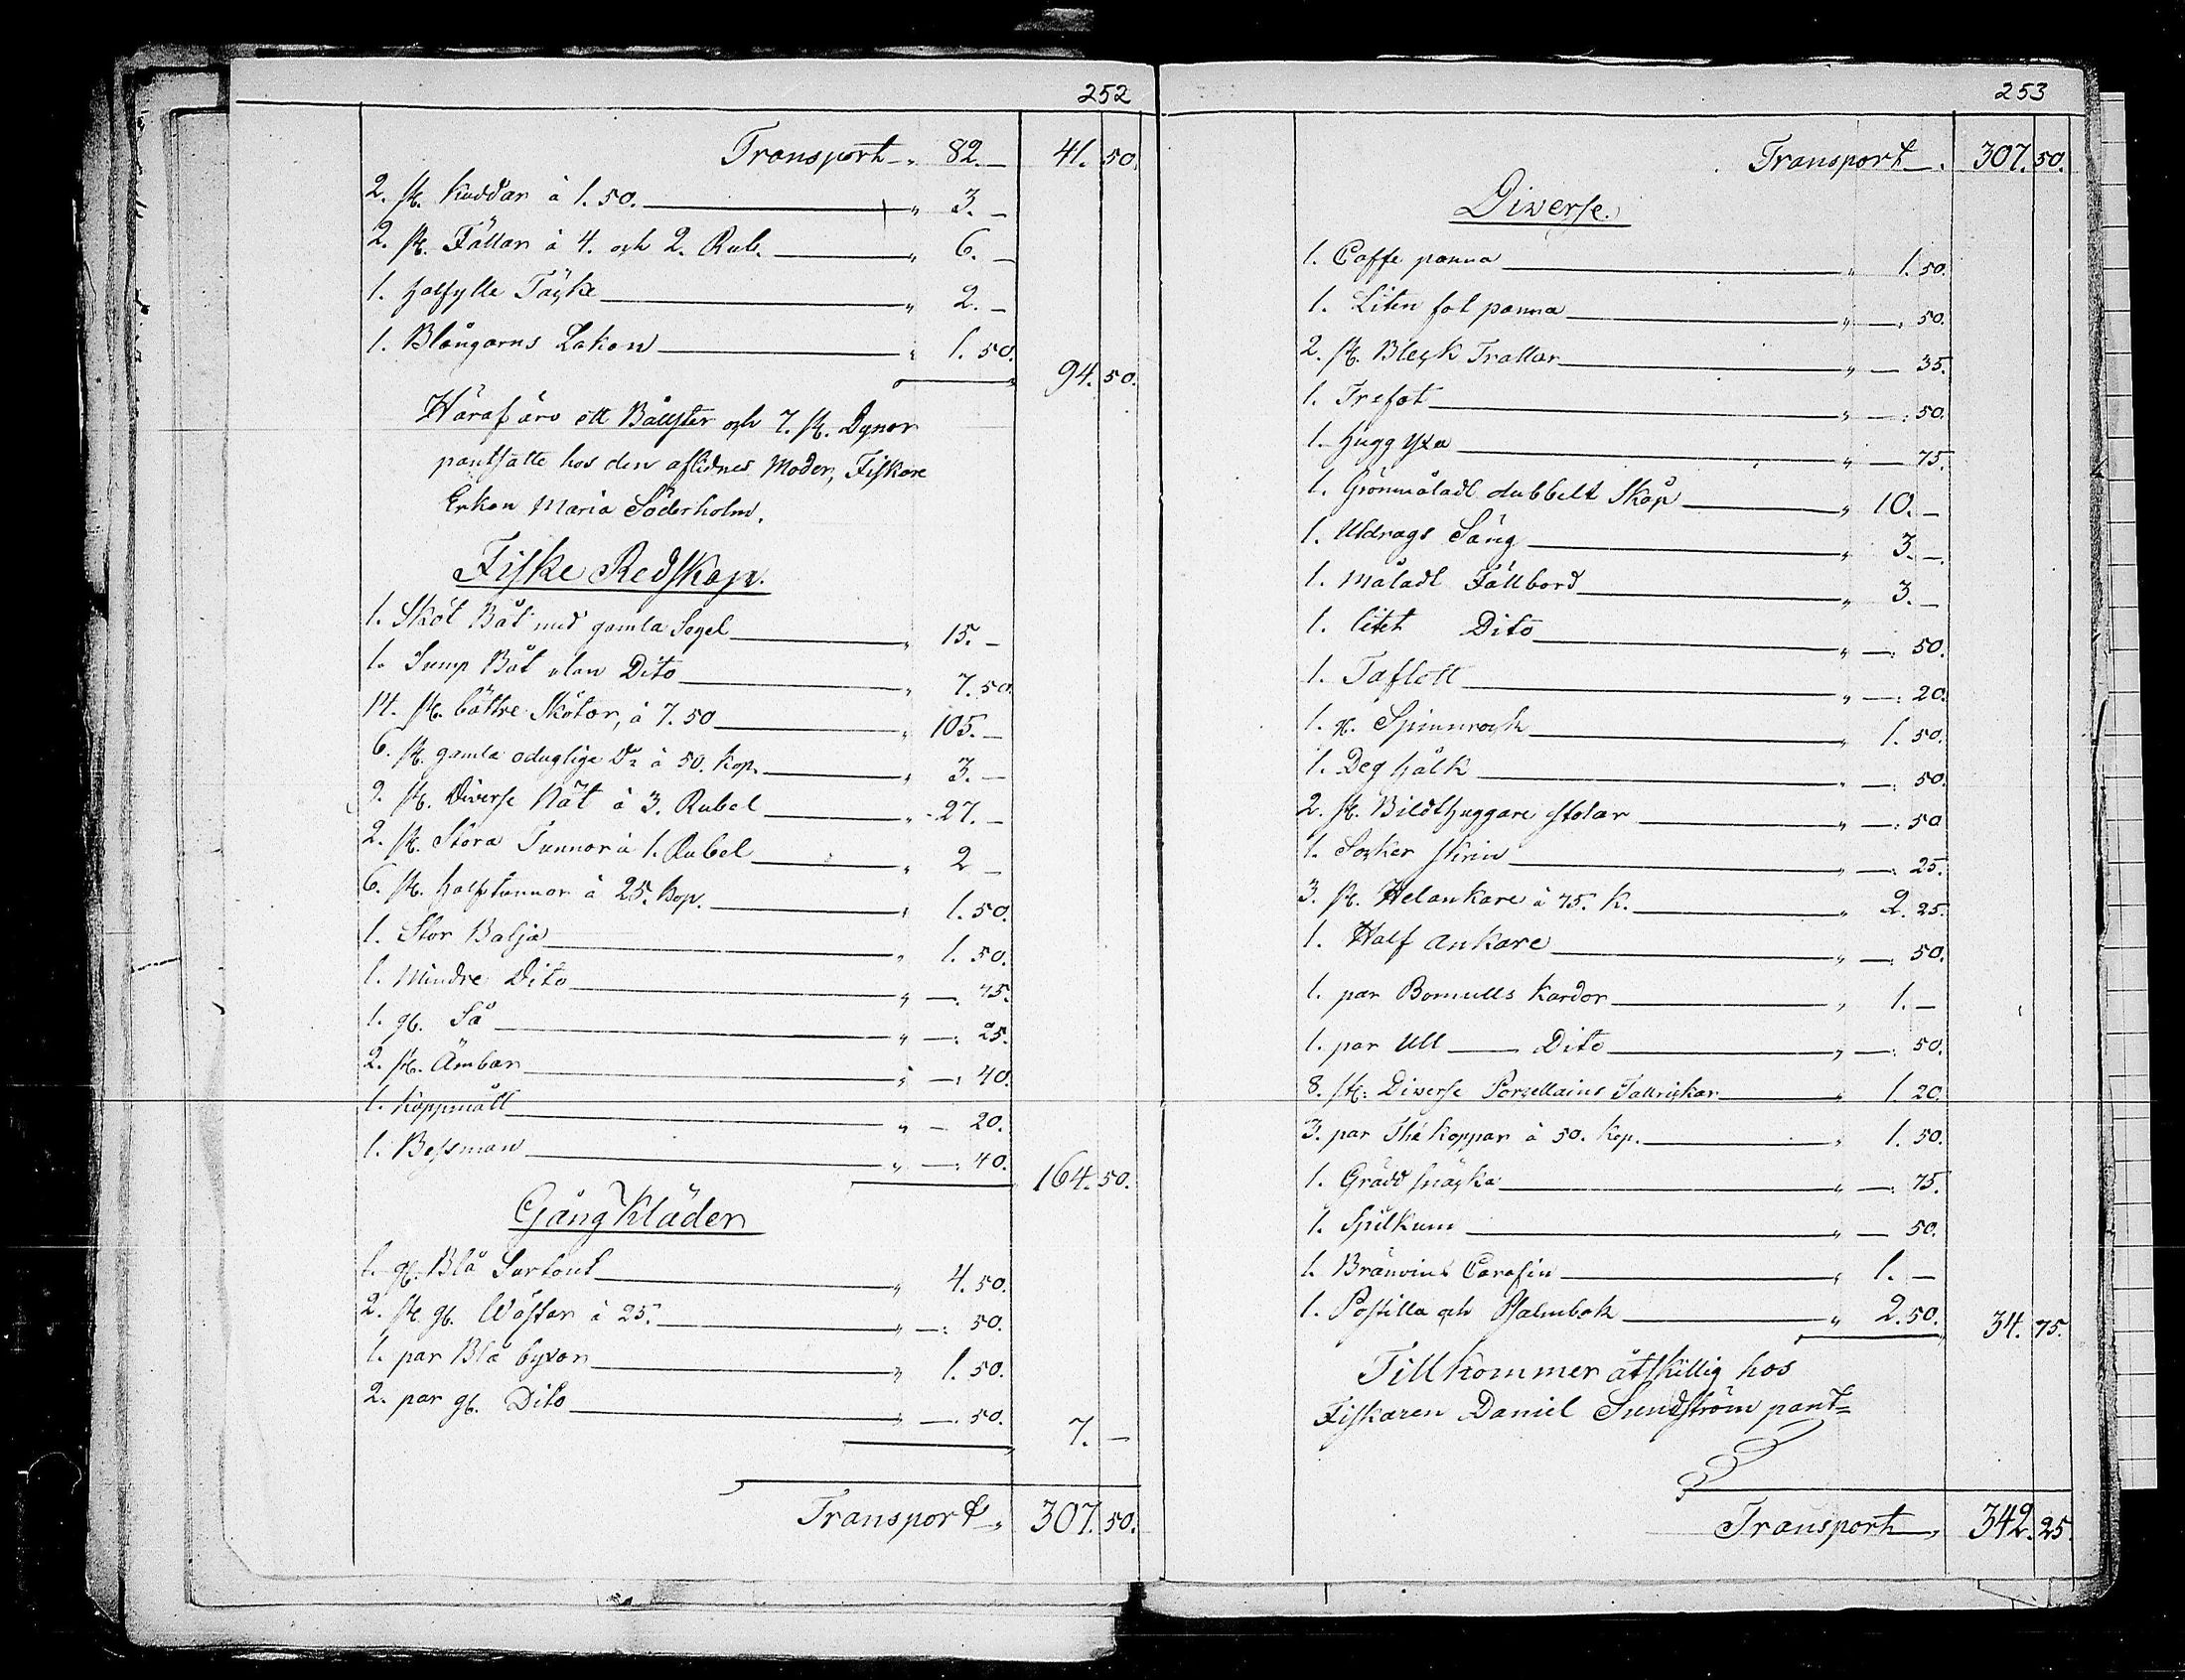 252
Transport „ 82. — 41. 50.
2. st. Kuddar à 1. 50. „ 3. —
2. st. Fällar à 4. och 2. Rub. „ 6. —
1. halfylle Täcke „ 2. —
1. Blångarns Lakan „ 1. 50.
94. 50.
Häraf äro ett Bållster och 7. st. Dynor
pantsatte hos den aflidnes Moder, Fiskare
Enkan Maria Söderholm.
Fiske Redskap.
1. Sköt Båt med gamla Segel „ 15. —
1. Sump Båt utan Dito „ 7. 50.
14. st. bättre Skötar, à 7. 50 „ 105. —
6. st. gamla oduglige Do à 50. Kop. „ 3. —
9. st. Diverse Nät à 3. Rubel „ 27. —
2. st. Stora Tunnor à 1. Rubel „ 2 —
6. st. halftunnor à 25. Kop. „ 1. 50.
1. Stor Balja „ 1. 50.
1. Mindre Dito „ —. 75.
1. gl. Så „ —: 25.
2. st. Ämbar „ —: 40.
1. Kappmått „ — 20.
1. Bessman „ —: 40.
164. 50.
Gång Kläder
1. gl. Blå Surtout „ 4. 50.
2. st. gl. Wästar à 25. „ —: 50.
1. par Blå byxor „ 1. 50.
2. par gl. Dito „ —. 50.
7. —
Transport „ 307. 50.
253
Transport „ 307. 50.
Diverse.
1. Caffe panna „ 1. 50.
1. Liten fot panna „ —: 50.
2. st. Bleck Trattar „ — 35.
1. Trefot „ —: 50.
1. Hugg yxa „ — 75.
1. Grönmåladt dubbelt Skåp „ 10. —
1. Utdrags Säng „ 3. —
1. Måladt Fällbord „ 3. —
1. litet Dito „ —: 50.
1. Taflett „ —: 20.
1. gl. Spinnrock „ 1. 50.
1. Deg hålk „ —: 50.
2. st. Bildthuggare stolar „ —: 50
1. Socker skrin „ —: 25.
3. st. Helankare à 75. K. „ 2. 25.
1. Half ankare „ —: 50.
1. par Bomulls Kardor „ 1. —
1. par Ull — Dito „ —: 50.
8. st. Diverse Porzellains Tallrickar „ 1. 20.
3. par Thé Koppar à 50. Kop. „ 1. 50.
1. Grädd snäcka „ —: 75.
1. Spilkum „ — 50.
1. Bränvins Carafin „ 1. —
1. Postilla och Psalmbok „ 2. 50.
34. 75.
Tillkommer åtskillig hos
Fiskaren Daniel Sundström pant=
Transport „ 342. 25.